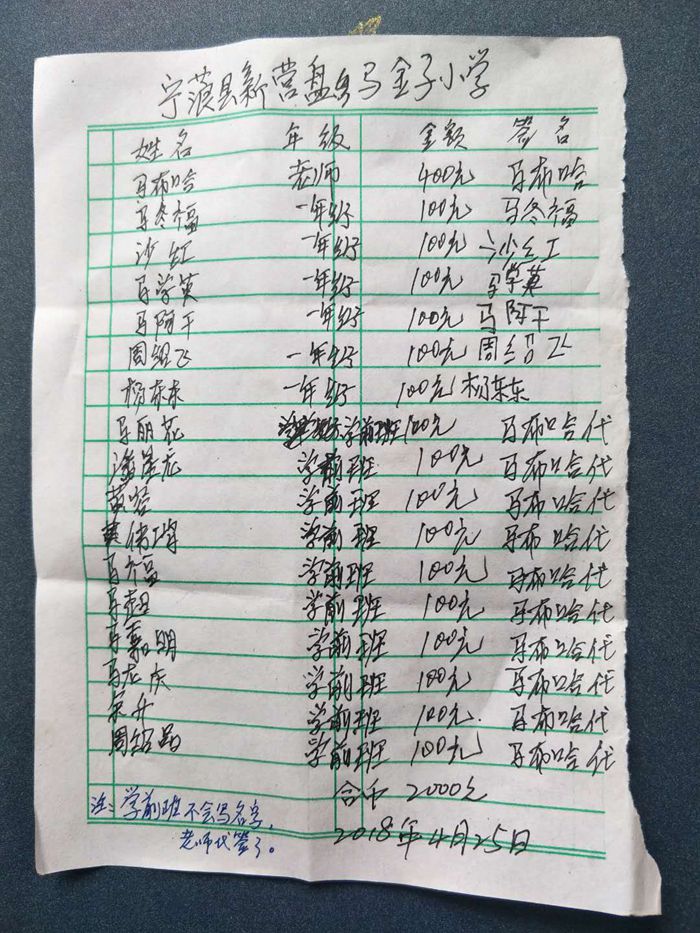 宁蒗县新营盘乡马金子小学
姓名 年级 金额 签名
马布哈 老师 400元 马布哈
马冬福 一年级 100元 马冬福
沙红 一年级 100元 沙红
马学英 一年级 100元 马学英
马阿干 一年级 100元 马阿干
周绍飞 一年级 100元 周绍飞
杨东东 一年级 100元 杨东东
马丽花 学前班 100元 马布哈代
潘星龙 学前班 100元 马布哈代
学前班 100元 马布哈代
学前班 100元 马布哈代
马福 学前班 100元 马布哈代
马超 学前班 100元 马布哈代
马嘉明 学前班 100元 马布哈代
马龙庆 学前班 100元 马布哈代
宋升 学前班 100元. 马布哈代
周绍品 学前班 100元 马布哈代
合币 2000元
注:学前班不会写名字,
老师代签了。
2018年4月25日